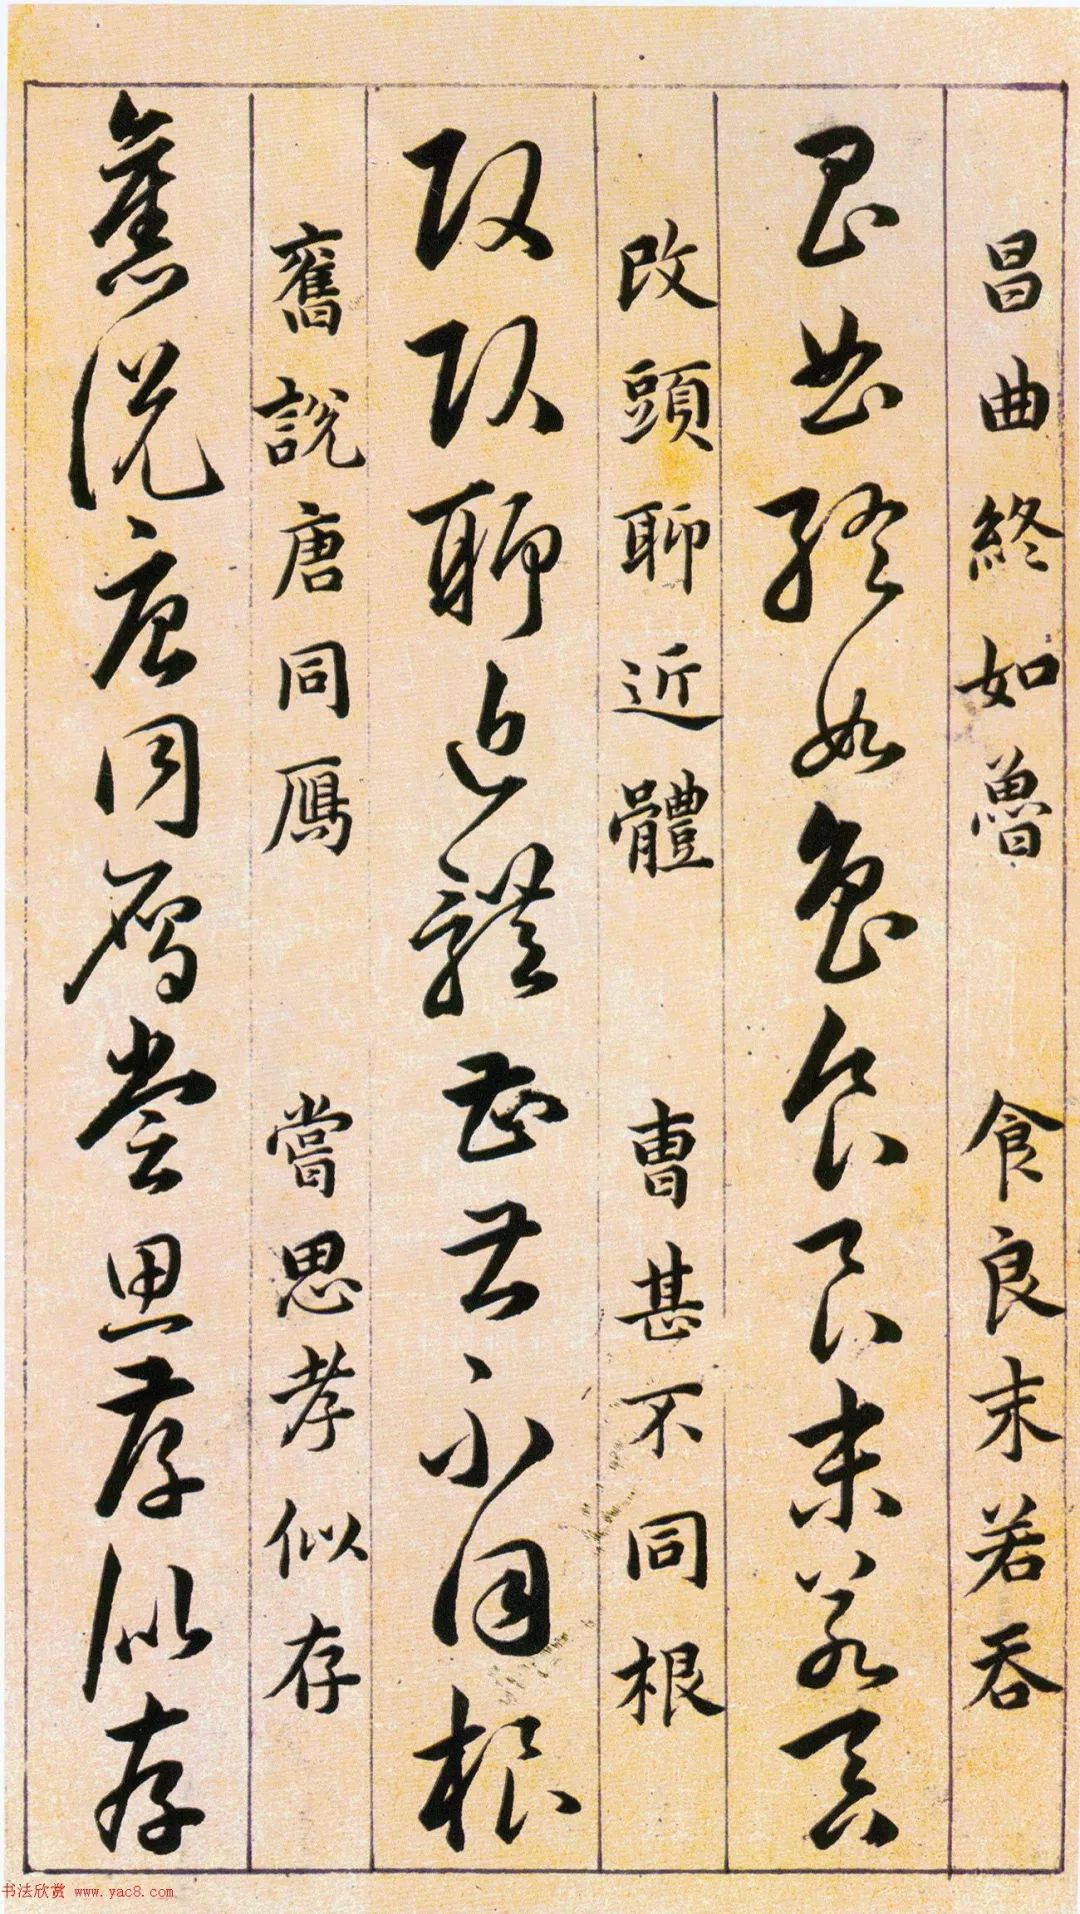 昌曲終如魯 食良末若吞
昌曲終如魯食良末若吞
改頭聊近體 曹甚不同根
改頭聊近體曹甚不同根
舊説唐同鴈 嘗思孝似存
舊説唐同鴈嘗思孝似存
书法欣赏 www.yac8.com